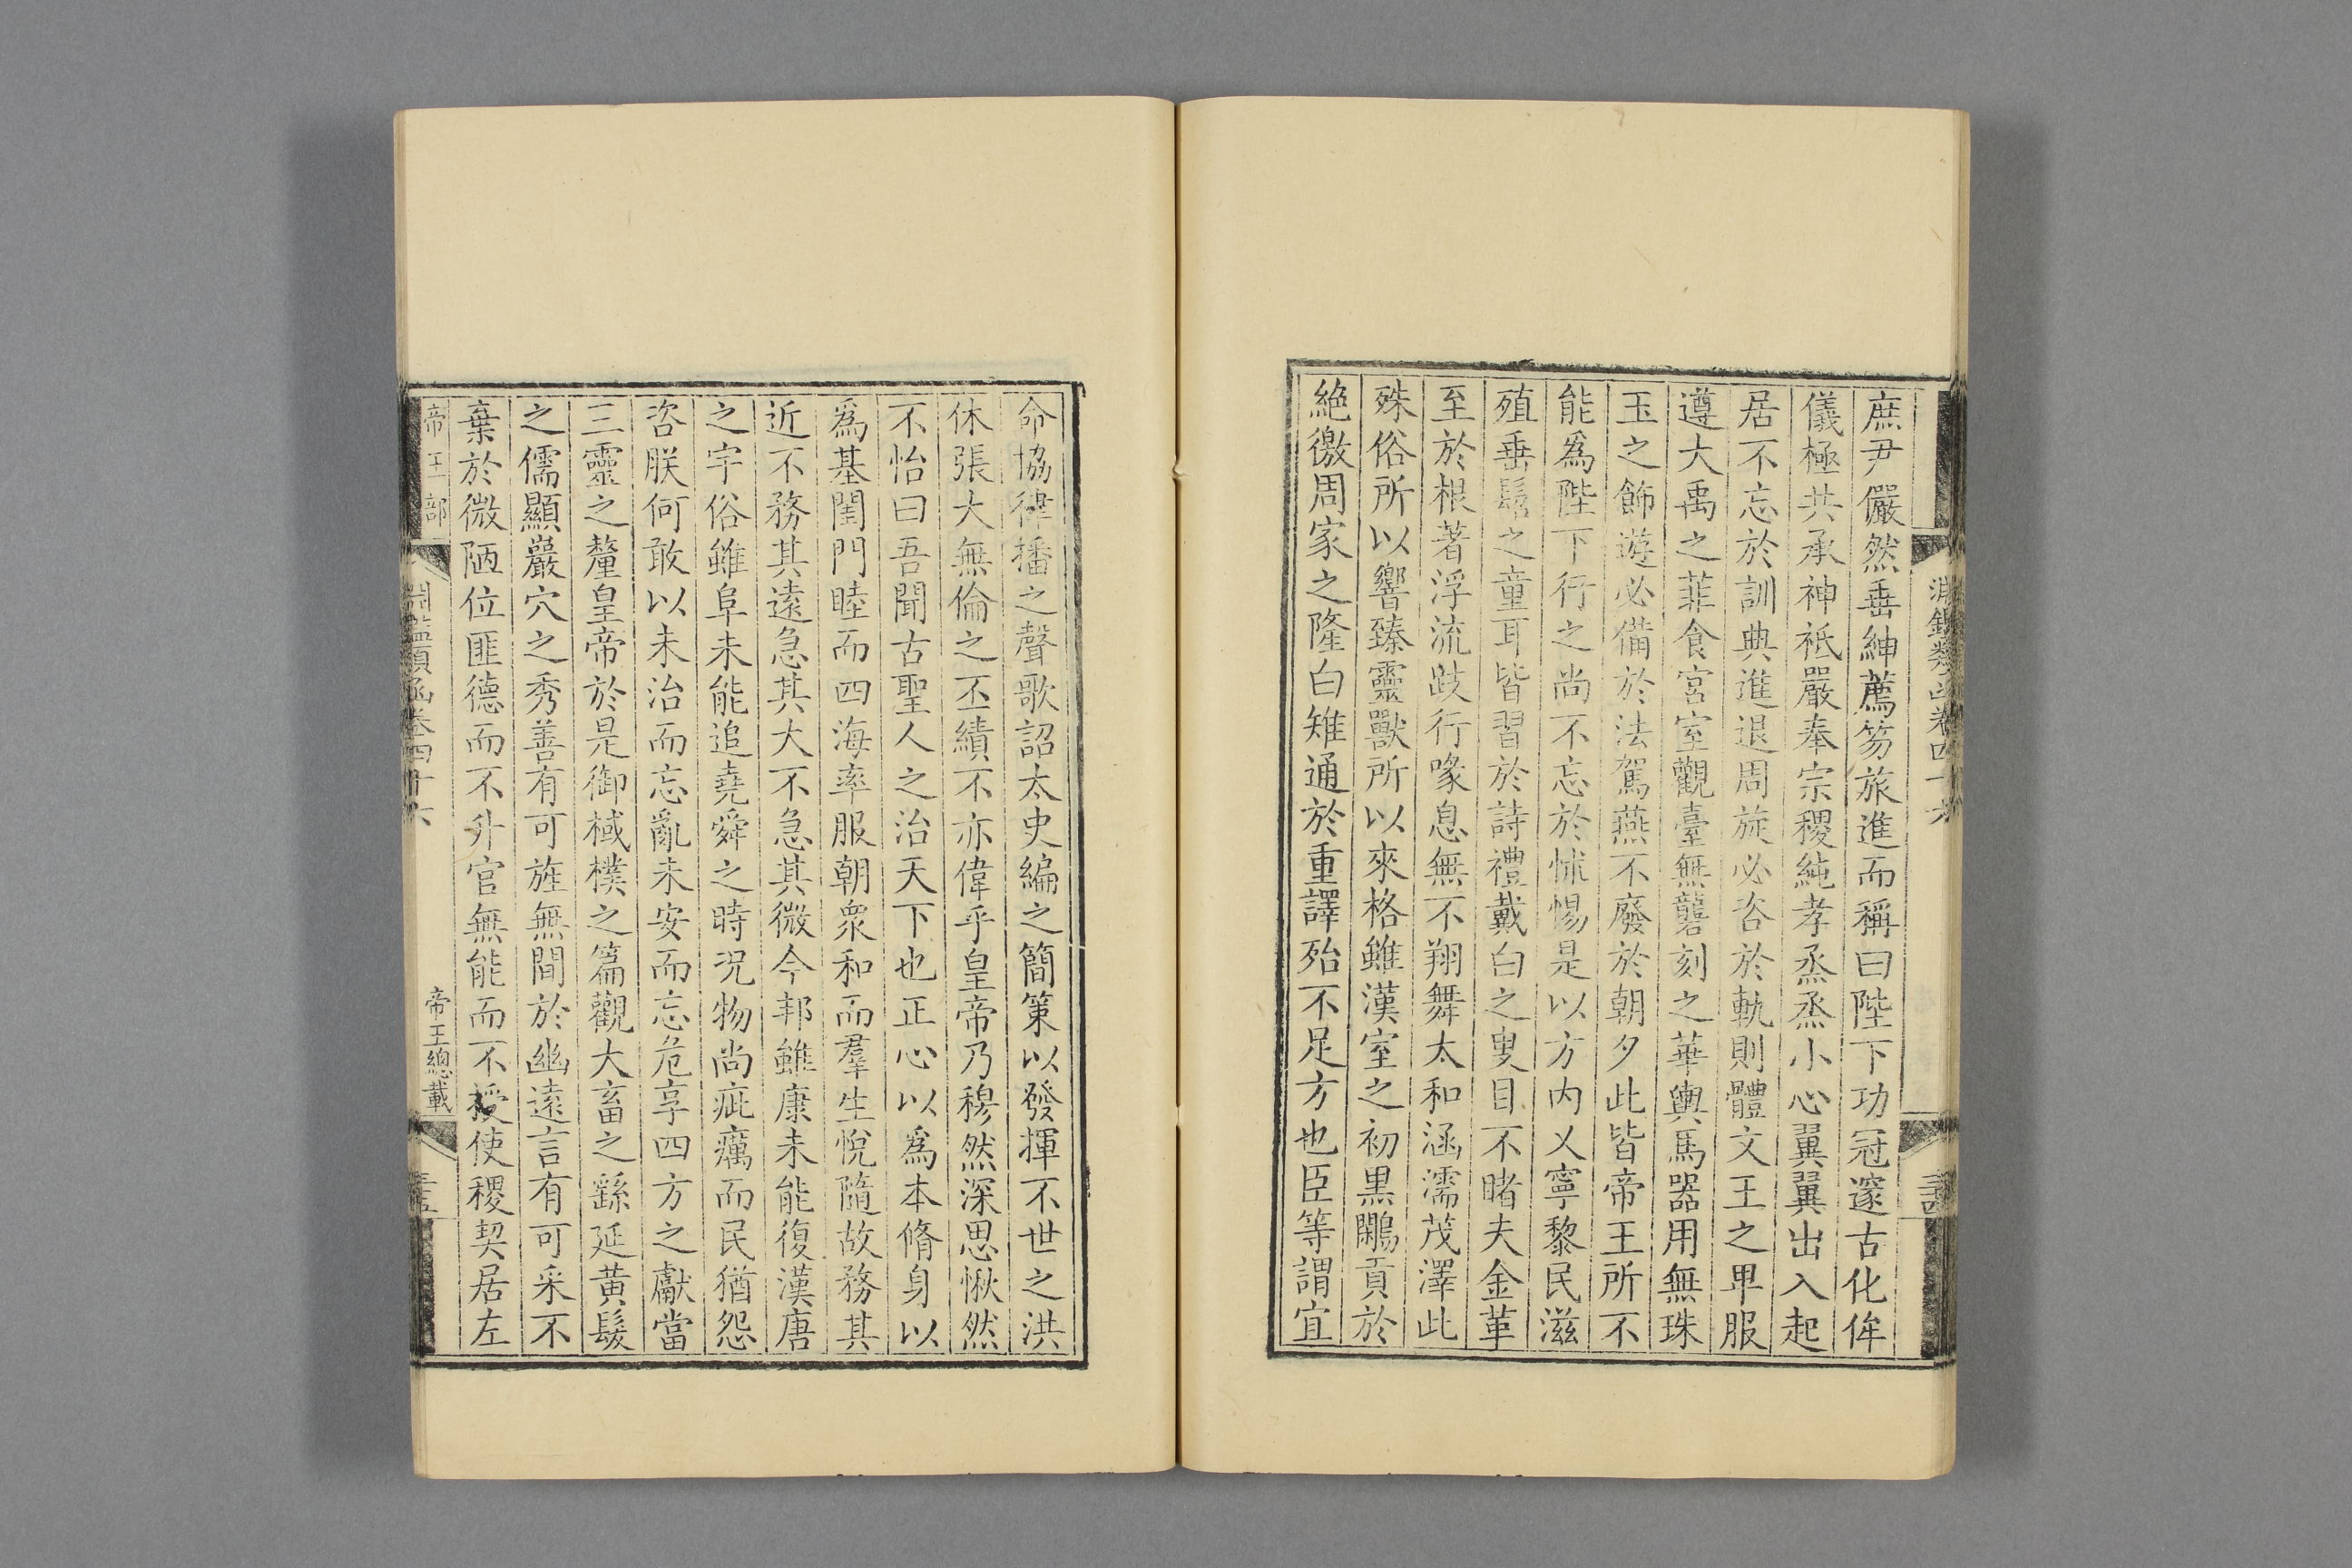 淵鑑類函卷四十六
庶尹儼然垂紳薦笏旅進而稱曰陛下功冠邃古化侔
儀極共承神祇嚴奉宗稷純孝烝烝小心翼翼出入起
居不忘於訓典進退周旋必咨於軌則體文王之卑服
遵大禹之菲食宮室觀臺無礱刻之華輿馬器用無珠
玉之飾遊必備於法駕燕不廢於朝夕此皆帝王所不
能爲陛下行之尚不忘於怵惕是以方内乂寧黎民滋
殖垂髫之童耳皆習於詩禮戴白之叟目不睹夫金革
至於根著浮流跂行喙息無不翔舞太和涵濡茂澤此
殊俗所以嚮臻靈獸所以來格雖漢室之初黒鷴貢於
絶徼周家之隆白雉通於重譯殆不足方也臣等謂宜
命協律播之聲歌詔太史編之簡策以發揮不世之洪
休張大無倫之丕績不亦偉乎皇帝乃穆然深思愀然
不怡曰吾聞古聖人之治天下也正心以爲本脩身以
爲基閨門睦而四海率服朝衆和而羣生悅隨故務其
近不務其遠急其大不急其微今邦雖康未能復漢唐
之宇俗雖阜未能追堯舜之時况物尚疵癘而民猶怨
咨朕何敢以未治而忘亂未安而忘危享四方之獻當
三靈之釐皇帝於是御棫樸之篇觀大畜之繇延黄髮
之儒顯巖穴之秀善有可旌無間於幽遠言有可采不
棄於微陋位匪德而不升官無能而不授使稷契居左
帝王部 淵鑑類函卷四十六 帝王總載